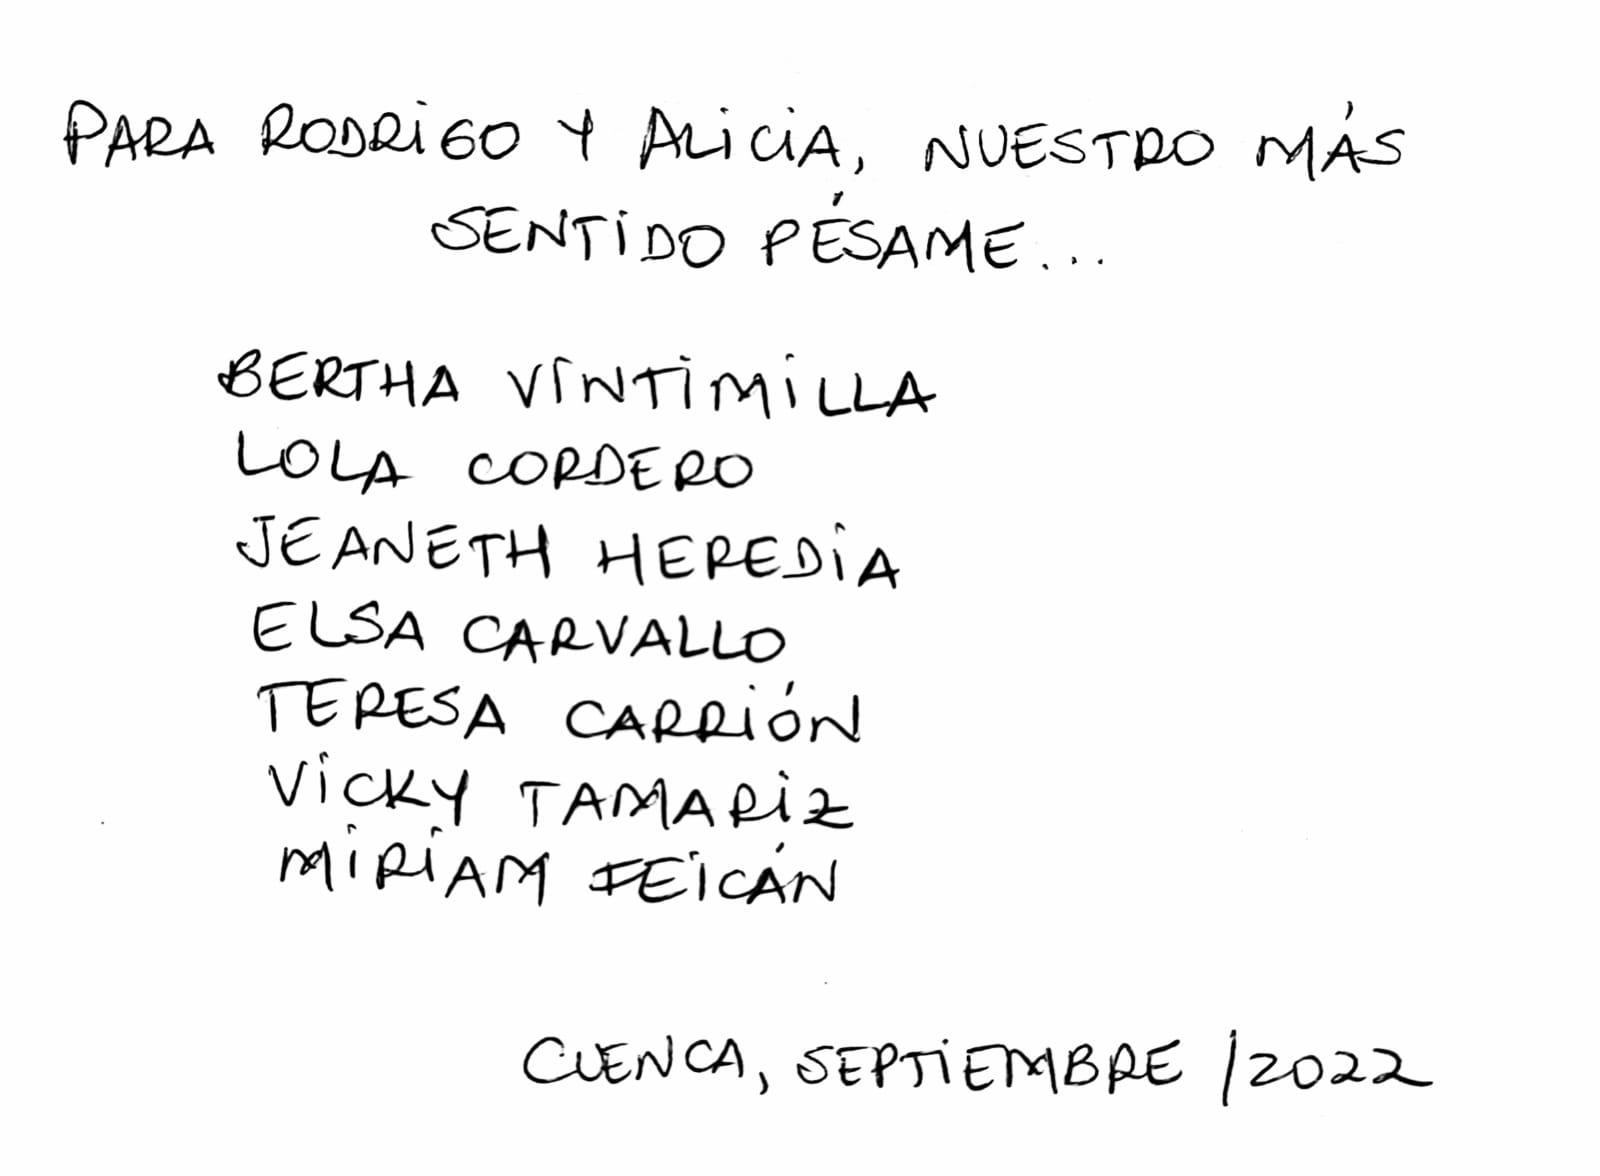 PARA RODRIGO Y ALICIA, NUESTRO MÁS
SENTIDO PÉSAME...
BERTHA VINTIMILLA
LOLA CORDERO
JEANETH HEREDIA
ELSA CARVALLO
TERESA CARRIÓN
VICKY TAMARIZ
MIRIAM FEICÁN
CUENCA, SEPTIEMBRE /2022